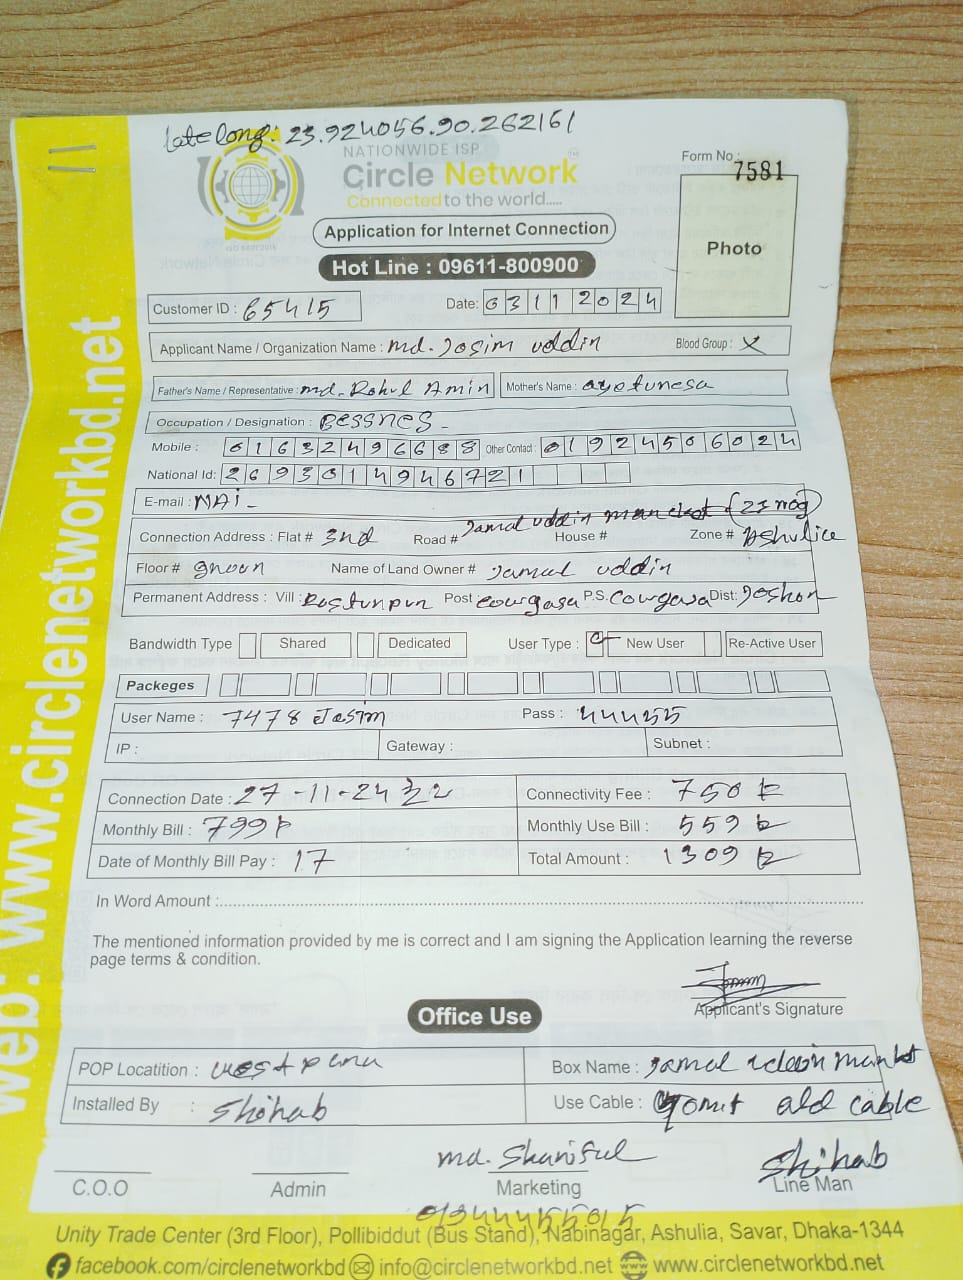 late long: 23.924056.90.262161
NATIONWIDE ISP
Circle Network
Connected to the world.....
Form No.: 7581
Photo
Application for Internet Connection
Hot Line : 09611-800900
Customer ID : 65415 Date: 03112024
Applicant Name / Organization Name : md. Josim uddin Blood Group : X
Father's Name / Representative : md. Rohul Amin Mother's Name : ayotunesa
Occupation / Designation : Bessnes -
Mobile : 01632496688 Other Contact : 01924506024
National Id: 2693014946721
E-mail : NAi -
Jamal uddin
Connection Address : Flat # 3nd Road # House # Zone # Ashulice
Floor # Name of Land Owner # Jamal uddin
Permanent Address : Vill : Post P.S. Dist:
Bandwidth Type Shared Dedicated User Type : New User Re-Active User
Packeges
User Name : 7478 Josim Pass : 44455
IP : Gateway : Subnet :
Connection Date : 27-11-24 Connectivity Fee : 750
Monthly Bill : 799 Monthly Use Bill : 559
Date of Monthly Bill Pay : 17 Total Amount : 1309
In Word Amount :
The mentioned information provided by me is correct and I am signing the Application learning the reverse
page terms & condition.
Applicant's Signature
Office Use
POP Locatition : west para Box Name : Jamal
Installed By : Shihab Use Cable : old cable
md. Shariful Shihab
C.O.O Admin Marketing Line Man
Unity Trade Center (3rd Floor), Pollibiddut (Bus Stand), Nabinagar, Ashulia, Savar, Dhaka-1344
facebook.com/circlenetworkbd info@circlenetworkbd.net www.circlenetworkbd.net
web: www.circlenetworkbd.net